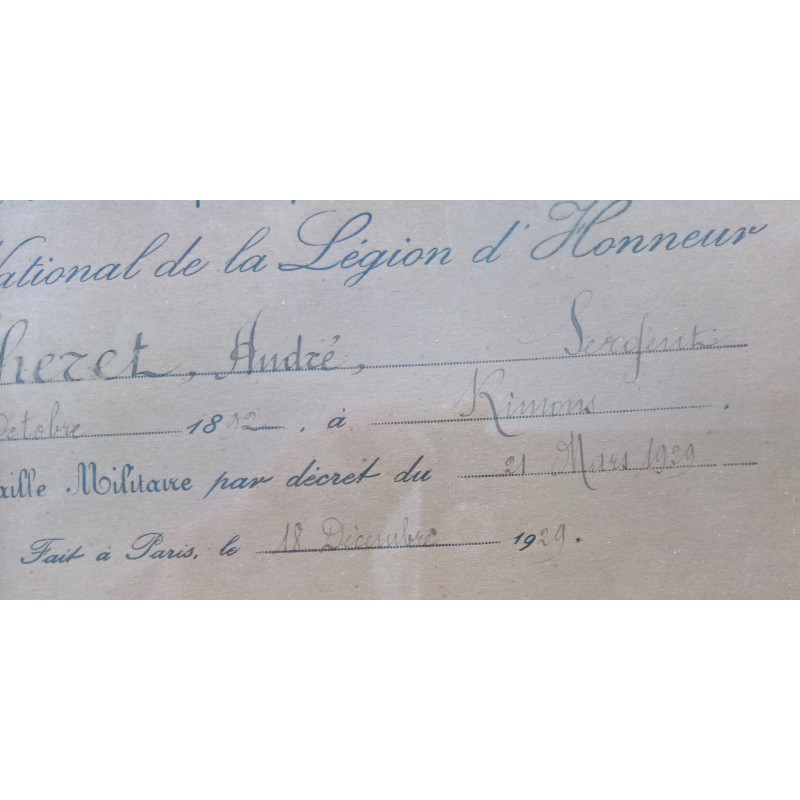 National de la Légion d'Honneur
heret, André, Sergent
Octobre 1892, à Rimons.
aille Militaire par décret du 21 Mars 1929
Fait à Paris, le 18 Décembre 1929.